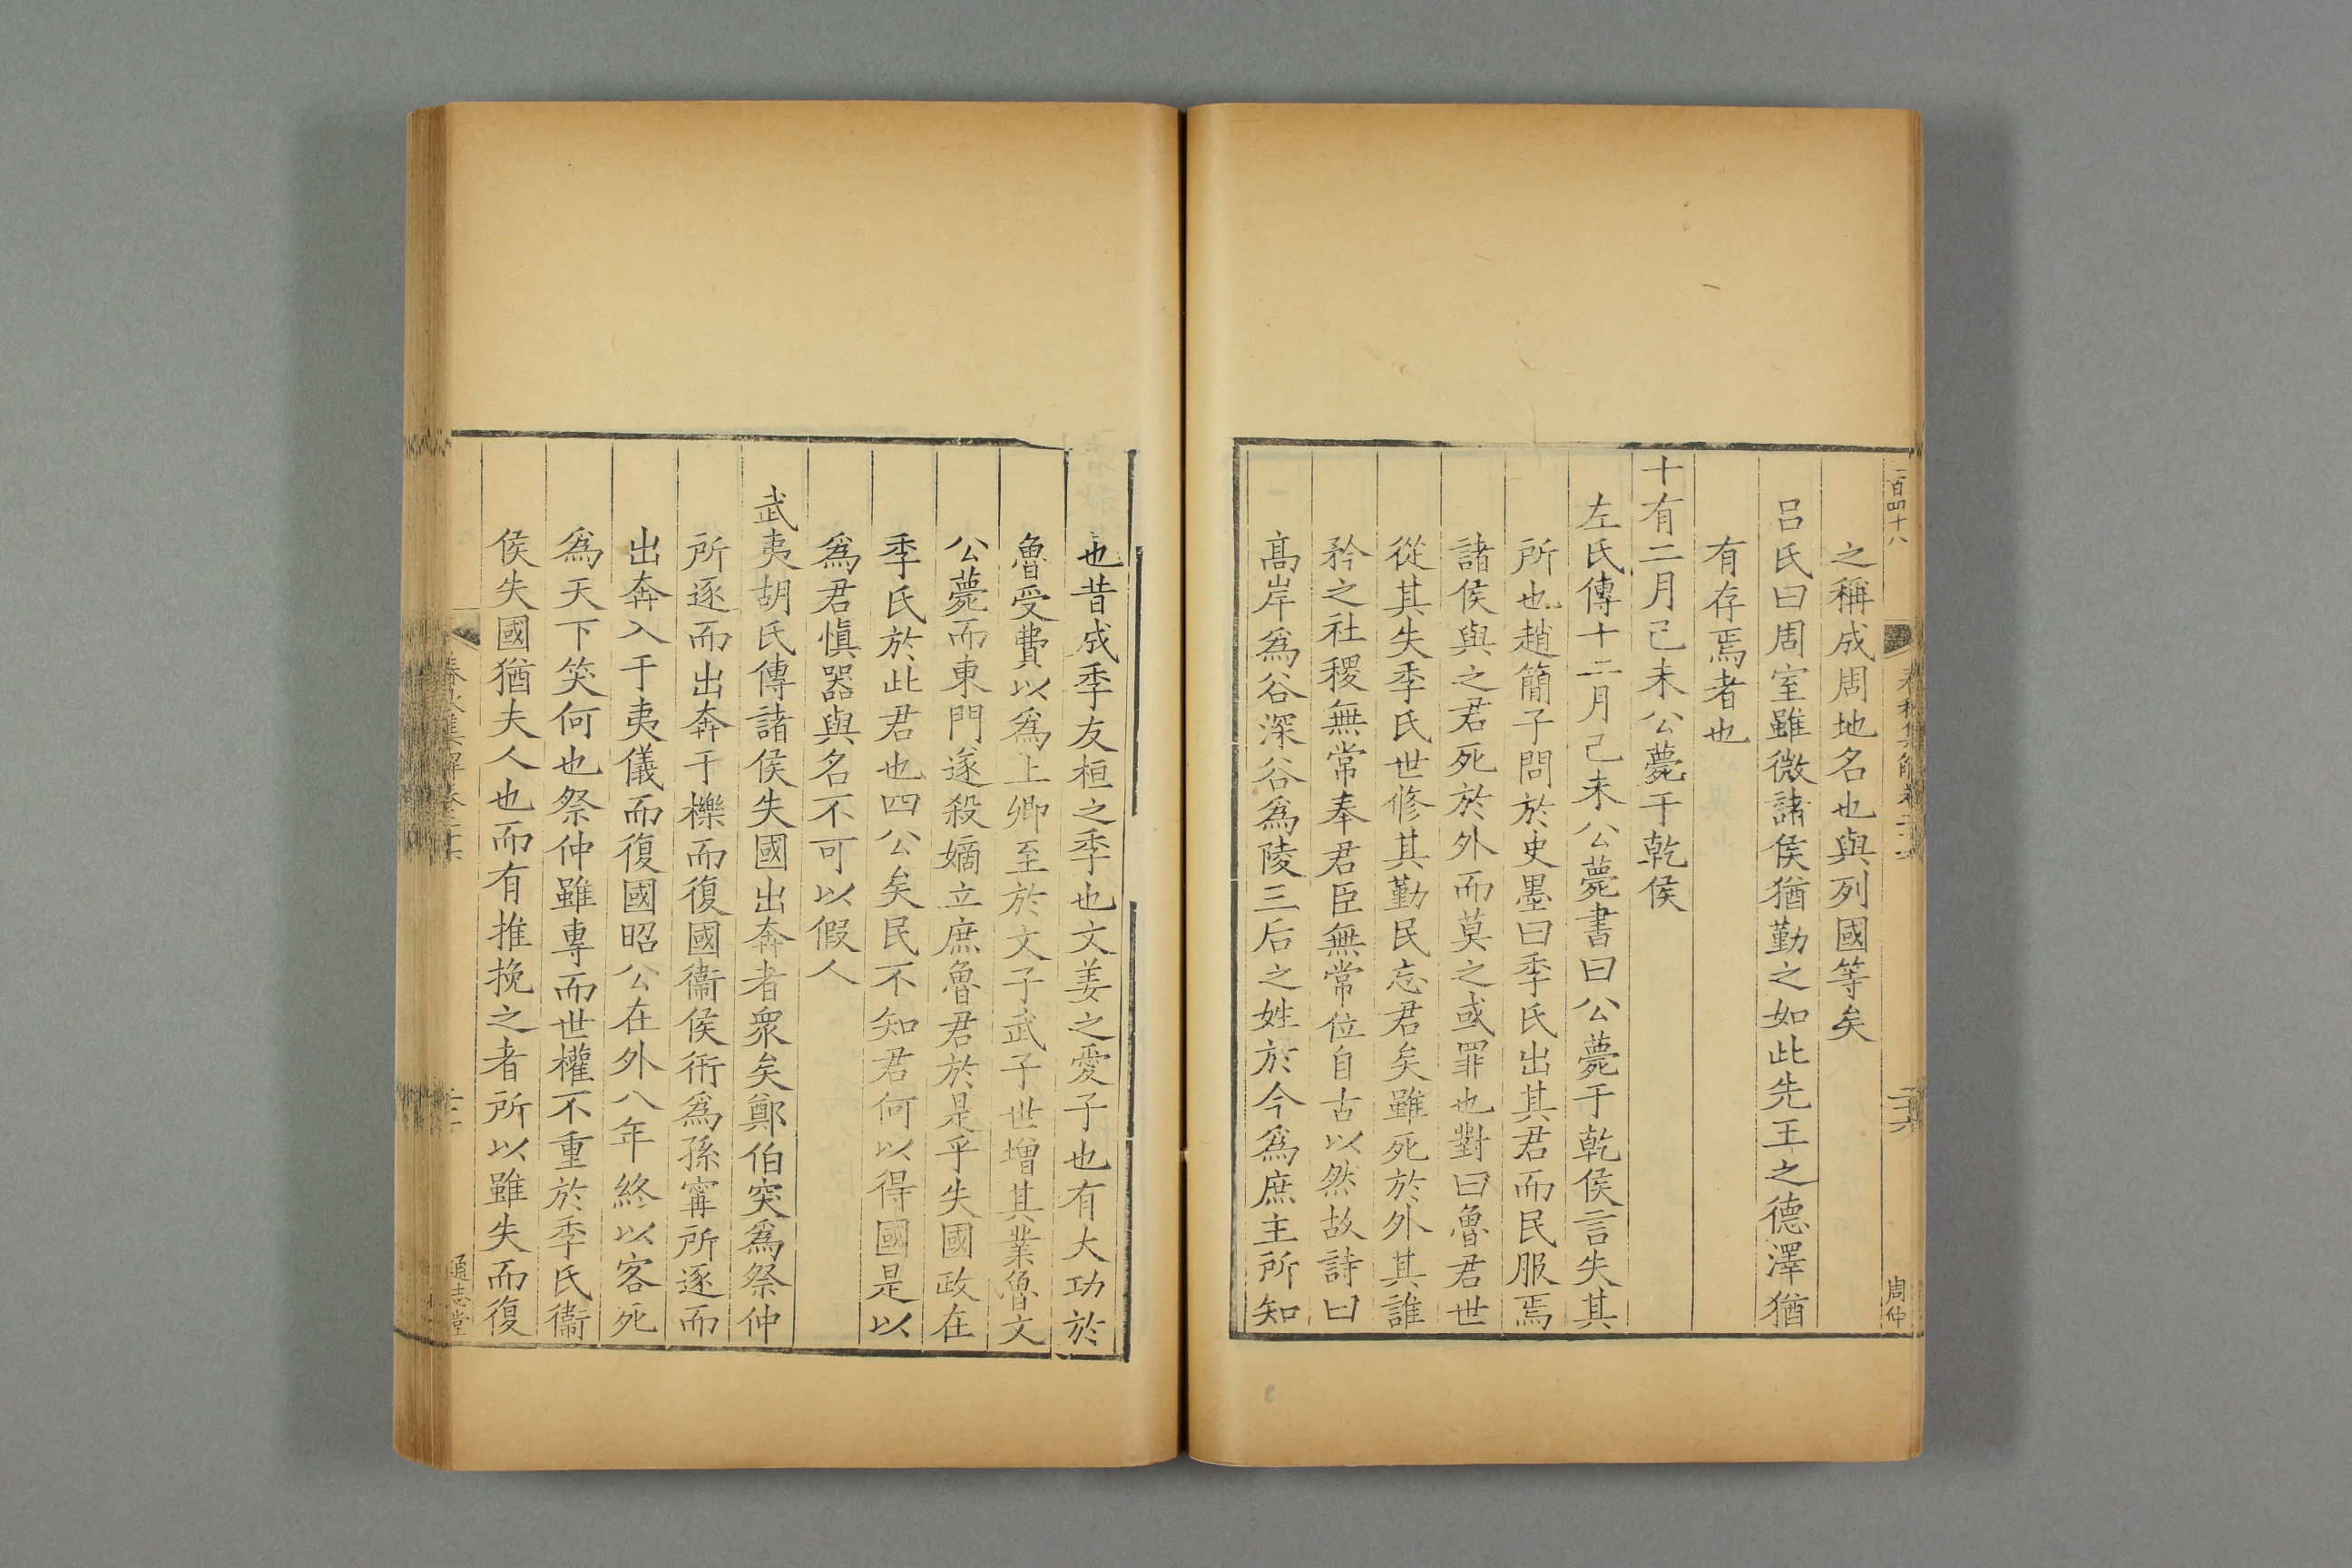 二百四十八
春秋集解卷二十六
二十六
周仲
之稱成周地名也與列國等矣
呂氏曰周室雖微諸侯猶勤之如此先王之德澤猶
有存焉者也
十有二月己未公薨于乾侯
左氏傳十二月己未公薨書曰公薨于乾侯言失其
所也趙簡子問於史墨曰季氏出其君而民服焉
諸侯與之君死於外而莫之或罪也對曰魯君世
從其失季氏世修其勤民忘君矣雖死於外其誰
矜之社稷無常奉君臣無常位自古以然故詩曰
高岸爲谷深谷爲陵三后之姓於今爲庶主所知
也昔成季友桓之季也文姜之愛子也有大功於
魯受費以爲上卿至於文子武子世增其業魯文
公薨而東門遂殺嫡立庶魯君於是乎失國政在
季氏於此君也四公矣民不知君何以得國是以
爲君愼器與名不可以假人
武夷胡氏傳諸侯失國出奔者衆矣鄭伯突爲祭仲
所逐而出奔于櫟而復國衞侯衎爲孫甯所逐而
出奔入于夷儀而復國昭公在外八年終以客死
爲天下笑何也祭仲雖專而世權不重於季氏衞
侯失國猶夫人也而有推挽之者所以雖失而復
春秋集解卷二十
通志堂